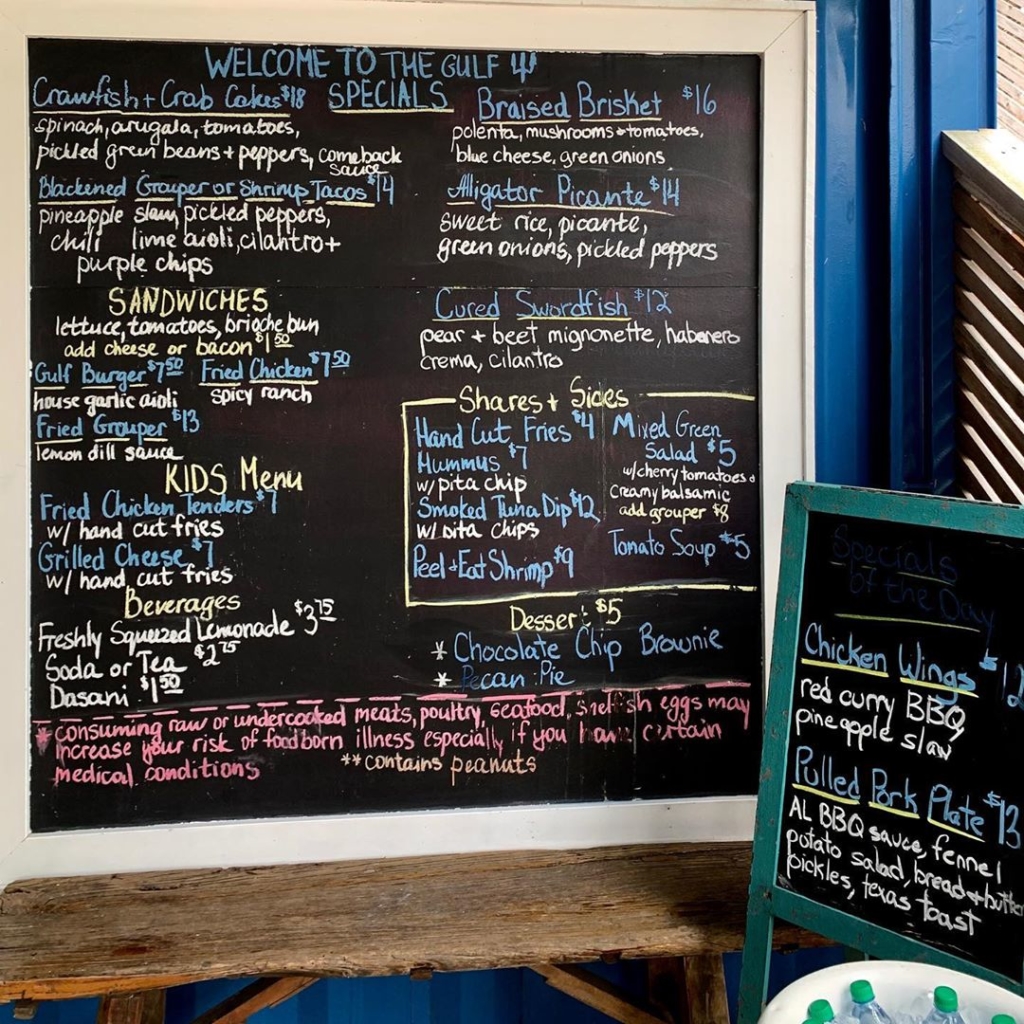 WELCOME TO THE GULF
SPECIALS
Crawfish + Crab Cakes $18
spinach, arugala, tomatoes,
pickled green beans + peppers, comeback
sauce
Blackened Grouper or Shrimp Tacos $14
pineapple slaw, pickled peppers,
chili lime aioli, cilantro +
purple chips
Braised Brisket $16
polenta, mushrooms + tomatoes,
blue cheese, green onions
Alligator Picante $14
sweet rice, picante,
green onions, pickled peppers
Cured Swordfish $12
pear + beet mignonette, habenero
crema, cilantro
SANDWICHES
lettuce, tomatoes, brioche bun
add cheese or bacon $1.50
Gulf Burger $7.50 Fried Chicken $7.50
house garlic aioli spicy ranch
Fried Grouper $13
lemon dill sauce
KIDS Menu
Fried Chicken Tenders $7
w/ hand cut fries
Grilled Cheese $7
w/ hand cut fries
Beverages
Freshly Squeezed Lemonade $3.75
Soda or Tea $2.75
Dasani $1.50
Shares + Sides
Hand Cut Fries $4
Hummus $7
w/ pita chip
Smoked Tuna Dip $12
w/ pita chips
Peel + Eat Shrimp $9
Mixed Green
Salad $5
w/ cherry tomatoes +
creamy balsamic
add grouper $8
Tomato Soup $5
Dessert $5
* Chocolate Chip Brownie
* Pecan Pie
* consuming raw or undercooked meats, poultry, seafood, shellfish eggs may
increase your risk of foodborn illness especially if you have certain
medical conditions
** contains peanuts
Specials
of the Day
Chicken Wings $12
red curry BBQ,
pineapple slaw
Pulled Pork Plate $13
AL BBQ sauce, fennel
potato salad, bread + butter
pickles, texas toast